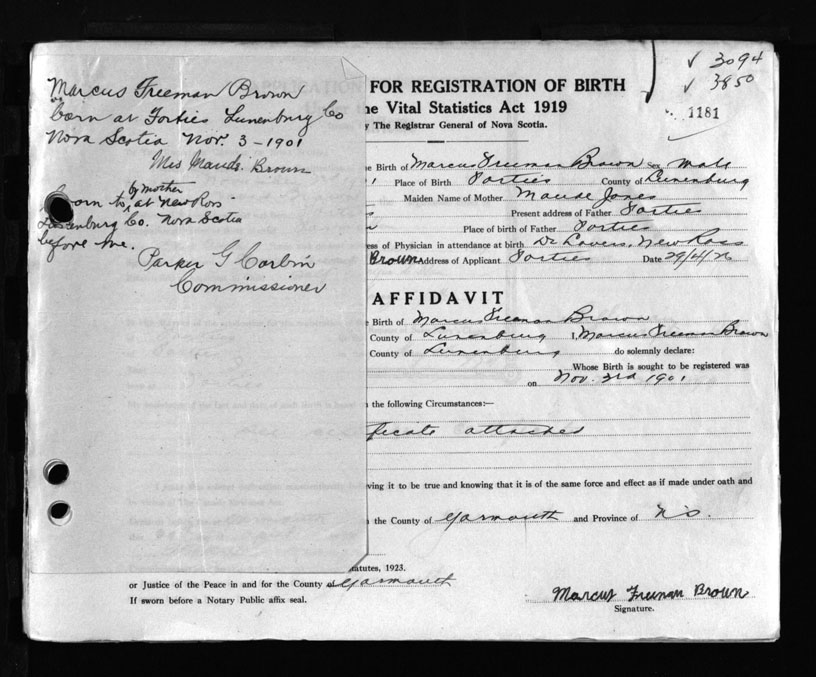 Marcus Freeman Brown
born at Forties Lunenburg Co
Nova Scotia Nov. 3 - 1901
Mrs Maude Brown
by mother
Sworn to, at New Ross
Lunenburg Co. Nova Scotia
before me.
Parker G Corbin
Commissioner
√ 3094
√ 3850
1181
FOR REGISTRATION OF BIRTH
he Vital Statistics Act 1919
y The Registrar General of Nova Scotia.
e Birth of Marcus Freeman Brown Sex Male
Place of Birth Forties County of Lunenburg
Maiden Name of Mother Maude Jones
Present address of Father Forties
Place of birth of Father Forties
ess of Physician in attendance at birth Dr New Ross
Brown Address of Applicant Forties Date 29/4/26
AFFIDAVIT
e Birth of Marcus Freeman Brown
County of Lunenburg I, Marcus Freeman Brown
County of Lunenburg do solemnly declare:
Whose Birth is sought to be registered was
on Nov. 3rd 1901
n the following Circumstances:—
ficate attached
ving it to be true and knowing that it is of the same force and effect as if made under oath and
n the County of Yarmouth and Province of N.S.
tatutes, 1923.
or Justice of the Peace in and for the County of Yarmouth
If sworn before a Notary Public affix seal.
Marcus Freeman Brown
Signature.